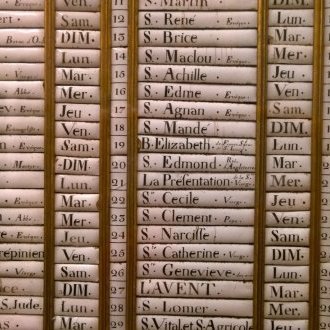 Ven. 11
Sam. 12 S. René Evêque. Lun.
DIM. 13 S. Brice Mar.
Lun 14 S. Maclou Mer.
Mar. 15 S. Achille Jeu.
Mer. 16 S. Edme Evêq. Ven.
Jeu 17 S. Agnan Evêque. Sam.
Ven. 18 S. Mandé DIM.
Sam. 19 B. Elizabeth Lun.
DIM. 20 S. Edmond Mar.
Lun. 21 La Présentation Vierge. Mer.
Mar. 22 Ste Cecile Vierge. Jeu.
Mer. 23 S. Clement Pape. Ven.
Jeu. 24 S. Narciſſe Sam.
Ven. 25 Ste Catherine Vierge. DIM.
Sam. 26 Ste Genevieve Lun.
DIM. 27 L'AVENT. Mar.
S. Jude. Lun. 28 S. Lomer Mer.
Mar. 29 S. Vital et S. Agricole Jeu.